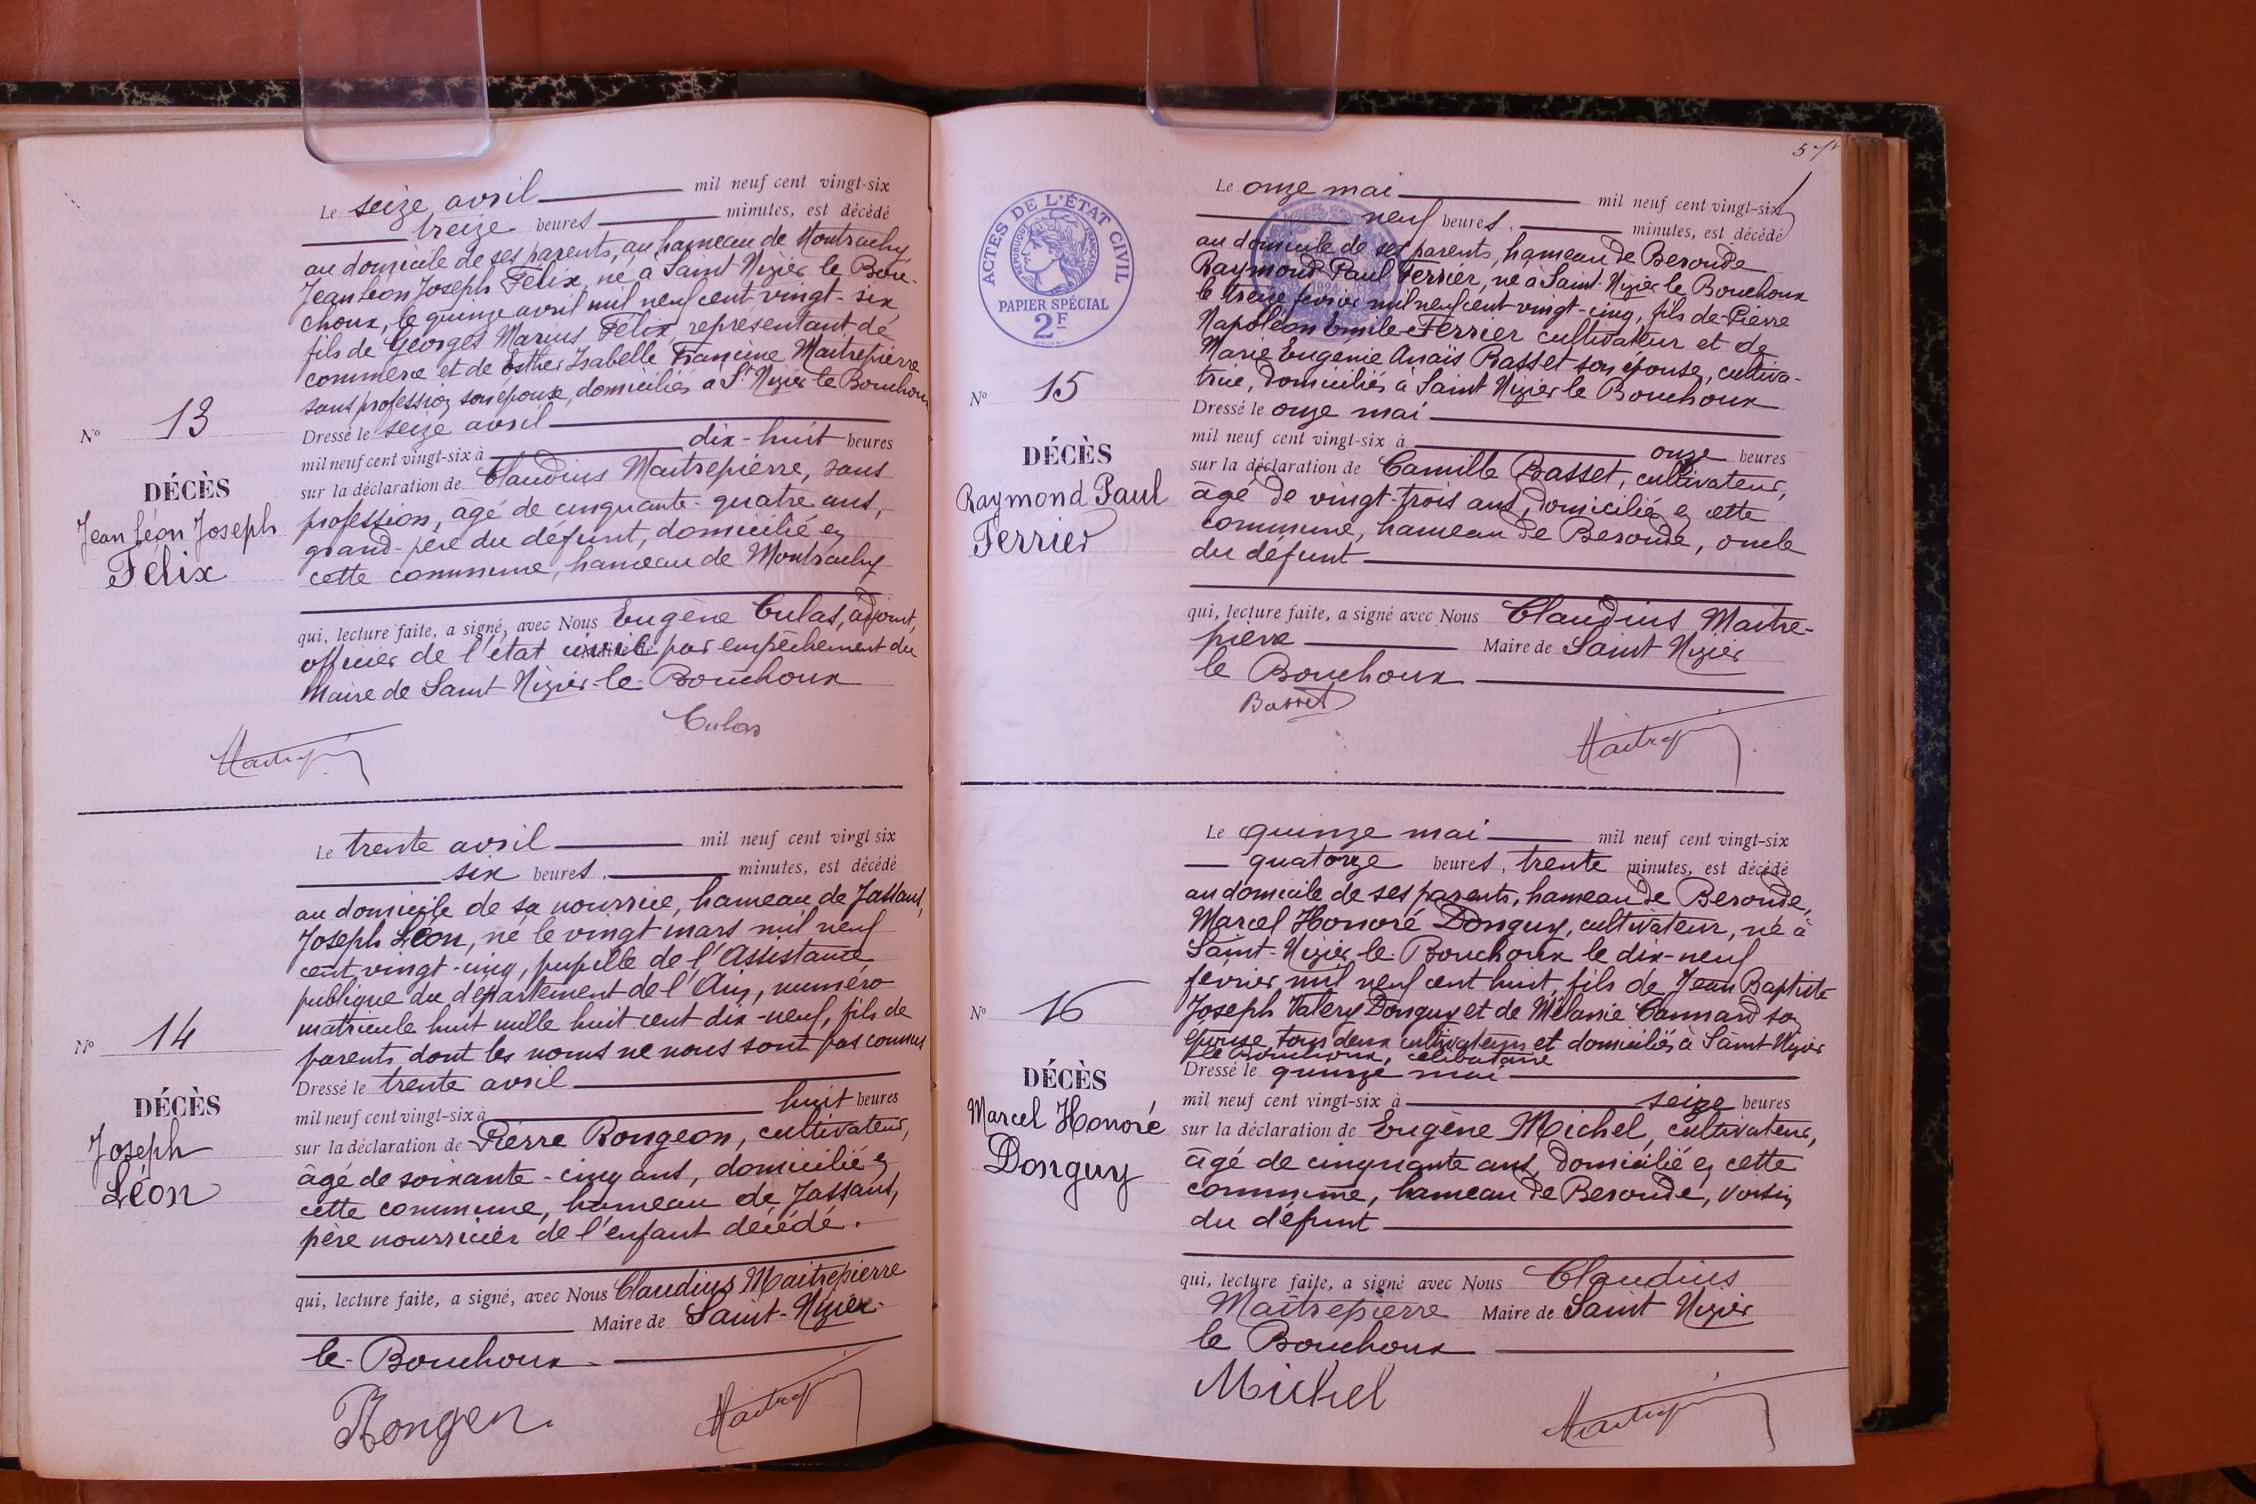 Le seize avril mil neuf cent vingt-six
treize heures minutes, est décédé
au domicile de ses parents, au hameau de
Jean Léon Joseph Félix, né à Saint-Nizier le Bou-
choux, le quinze avril mil neuf cent vingt-six,
fils de Georges Marius Félix représentant de
commerce et de Esther Isabelle Francine Maitrepierre
sans profession son épouse, domiciliés à St Nizier le Bouchoux
Nº 13
DÉCÈS
Jean Léon Joseph
Félix
Dressé le seize avril
mil neuf cent vingt-six à dix-huit heures
sur la déclaration de Claudius Maitrepierre, sans
profession, âgé de cinquante-quatre ans,
grand-père du défunt, domicilié en
cette commune, hameau de
qui, lecture faite, a signé, avec Nous Eugène Culas, adjoint,
officier de l'état civil par empêchement du
Maire de Saint-Nizier-le-Bouchoux
Culas
Le trente avril mil neuf cent vingt six
six heures. minutes, est décédé
au domicile de sa nourrice, hameau de Jassans,
Joseph Léon, né le vingt mars mil neuf
cent vingt-cinq, pupille de l'Assistance
publique du département de l'Ain, numéro
matricule huit mille huit cent dix-neuf, fils de
parents dont les noms ne nous sont pas connus
Nº 14
DÉCÈS
Joseph
Léon
Dressé le trente avril
mil neuf cent vingt-six à huit heures
sur la déclaration de Pierre Rongeon, cultivateur,
âgé de soixante-cinq ans, domicilié en
cette commune, hameau de Jassans,
père nourricier de l'enfant décédé.
qui, lecture faite, a signé, avec Nous Claudius Maitrepierre
Maire de Saint-Nizier-
le-Bouchoux
57
ACTES DE L'ÉTAT CIVIL
RÉPUBLIQUE FRANÇAISE
PAPIER SPÉCIAL
2F
1924
Le onze mai mil neuf cent vingt-six
neuf heures. minutes, est décédé
au domicile de ses parents, hameau de Beronde
Raymond Paul Ferrier, né à Saint-Nizier le Bouchoux
le treize février mil neuf cent vingt-cinq, fils de Pierre
Napoléon Emile Ferrier cultivateur et de
Marie Eugénie Anaïs Basset son épouse, cultiva-
trice, domiciliés à Saint Nizier le Bouchoux
Nº 15
DÉCÈS
Raymond Paul
Ferrier
Dressé le onze mai
mil neuf cent vingt-six à onze heures
sur la déclaration de Camille Basset, cultivateur,
âgé de vingt-trois ans, domicilié en cette
commune, hameau de Beronde, oncle
du défunt
qui, lecture faite, a signé avec Nous Claudius Maitre-
pierre Maire de Saint Nizier
le Bouchoux
Basset
Le quinze mai mil neuf cent vingt-six
quatorze heures, trente minutes, est décédé
au domicile de ses parents, hameau de Beronde,
Marcel Honoré Donguy, cultivateur, né à
Saint-Nizier-le-Bouchoux le dix-neuf
février mil neuf cent huit, fils de Jean Baptiste
Joseph Valery Donguy et de Mélanie Cannard son
épouse, tous deux cultivateurs et domiciliés à Saint Nizier
le Bouchoux, célibataire
Nº 16
DÉCÈS
Marcel Honoré
Donguy
Dressé le quinze mai
mil neuf cent vingt-six à seize heures
sur la déclaration de Eugène Michel, cultivateur,
âgé de cinquante ans, domicilié en cette
commune, hameau de Beronde, voisin
du défunt
qui, lecture faite, a signé avec Nous Claudius
Maitrepierre Maire de Saint Nizier
le Bouchoux
Michel